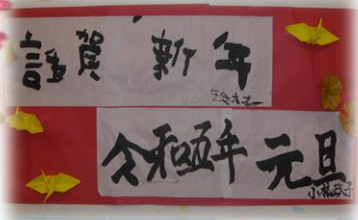 謹賀新年
令和五年 元旦